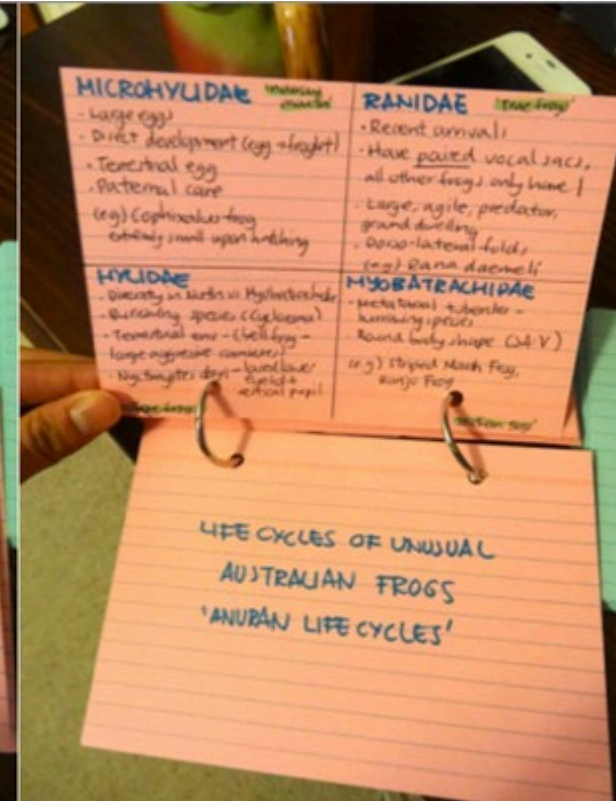 MICROHYLIDAE
- Large eggs
- Direct development (egg → froglet)
- Terrestrial egg
- Paternal care
(eg) Cophixalus frog
extremely small upon hatching
RANIDAE 'true frogs'
- Recent arrivals
- Have paired vocal sacs,
all other frogs only have 1
- Large, agile, predator,
ground dwelling
- Dorso-lateral folds
(eg) Rana daemeli
HYLIDAE
- Diversity in North vs Myobatrachidae
- Burrowing species (Cyclorana)
- Terrestrial env - (bell frog -
large aggressive
- Nyctimystes dayi -
eyelid +
vertical pupil
MYOBATRACHIDAE
- Metatarsal tubercles -
burrowing species
- Round body shape
(eg) Striped Marsh Frog,
Banjo Frog
LIFE CYCLES OF UNUSUAL
AUSTRALIAN FROGS
'ANURAN LIFE CYCLES'